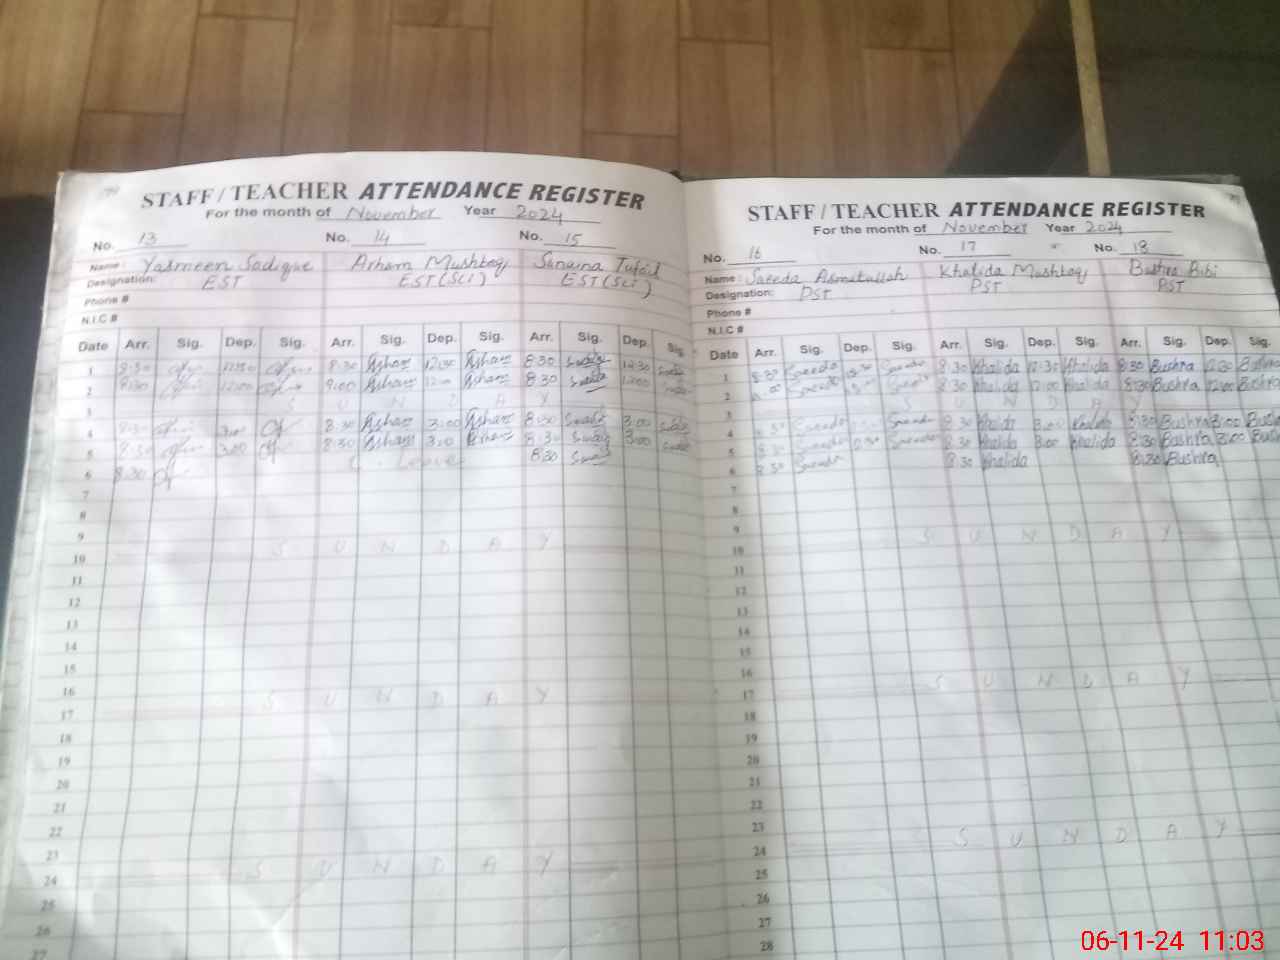 STAFF / TEACHER ATTENDANCE REGISTER
For the month of November Year 2024
No. 13 No. 14 No. 15
Name: Yasmeen Sadique Arham Mushtaq Sunaina Tufail
Designation: EST EST (Sci) EST (Sci)
Phone #
N.I.C #
Date Arr. Sig. Dep. Sig. Arr. Sig. Dep. Sig. Arr. Sig. Dep. Sig.
1 8:30 12:30 8:30 Arham 12:30 Arham 8:30 12:30
2 8:30 12:00 9:00 Arham 12:00 Arham 8:30 12:00
3 S U N D A Y
4 8:30 3:00 8:30 Arham 3:00 Arham 8:30 3:00
5 8:30 3:00 8:30 Arham 3:00 Arham 8:30 3:00
6 8:30 Leave 8:30
7
8
9
10 S U N D A Y
11
12
13
14
15
16
17 S U N D A Y
18
19
20
21
22
23
24 S U N D A Y
25
26
27
STAFF / TEACHER ATTENDANCE REGISTER
For the month of November Year 2024
No. 16 No. 17 No. 18
Name: Saeeda Asmatullah Khalida Mushtaq Bushra Bibi
Designation: PST PST PST
Phone #
N.I.C #
Date Arr. Sig. Dep. Sig. Arr. Sig. Dep. Sig. Arr. Sig. Dep. Sig.
1 8:30 Saeeda 12:30 Saeeda 8:30 Khalida 12:30 Khalida 8:30 Bushra 12:30 Bushra
2 Saeeda Saeeda 8:30 Khalida 12:00 Khalida 8:30 Bushra 12:00 Bushra
3 S U N D A Y
4 8:30 Saeeda Saeeda 8:30 Khalida 3:00 Khalida 8:30 Bushra 3:00 Bushra
5 8:30 Saeeda Saeeda 8:30 Khalida 3:00 Khalida 8:30 Bushra 3:00
6 8:30 Saeeda 8:30 Khalida 8:30 Bushra
7
8
9
10 S U N D A Y
11
12
13
14
15
16
17 S U N D A Y
18
19
20
21
22
23
24 S U N D A Y
25
26
27
28
06-11-24 11:03